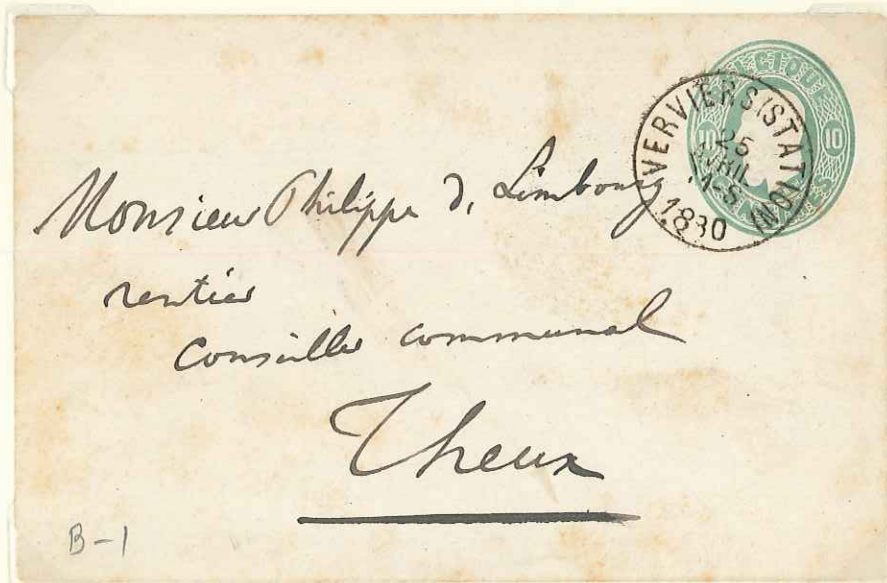 BELGIQUE
10 10
VERVIERS (STATION)
25
AVRIL
1880
Monsieur Philippe de Limbourg
rentier
Conseiller communal
Theux
B-1